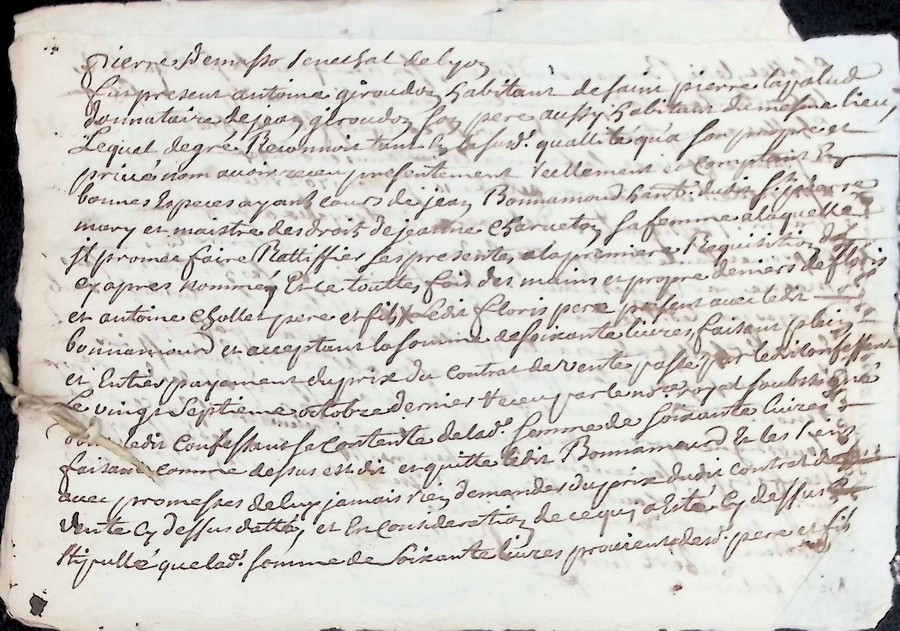 pierre demasso senechal de lyon
fut present antoine giroudon habitant de saint pierre lapalud
donnataire de jean giroudon son pere aussy habitant du mesme lieu,
Lequel degré Reconnoit tant en la susd. quallité qu'a son propre et
privé nom avoir receu presentement reellement et comptant En
bonnes Especes ayant cours de jean Bonnamour hant. dudit St. pierre
mary et maistre des droit de jeanne Charveton sa femme a laquelle
jl promet faire Rattiffier les presentes a la premiere Requisition des
cy apres nommés Et ce touttes fois des mains et propre deniers de floris
et antoine Chollet pere et fils Ledit floris pere present avec ledit
bonnamour et acceptant la somme de soixante livres faisant plein
et Entier payement du prix du contrat de vente passé par ledit confessant
Le vingt Septieme octobre dernier & receu par le nore. royal soubsigné
dont ledit Confessant se contente de lad. somme de soixante livres
faisant comme dessus est dit et quitte ledit Bonnamour Et les siens
avec promesses de luy jamais rien demander du prix dudit contrat de
vente cy dessus datté, et En consideration de ce qui a Esté cy dessus
stipullé que lad. somme de soixante livres provient desd. pere et fils